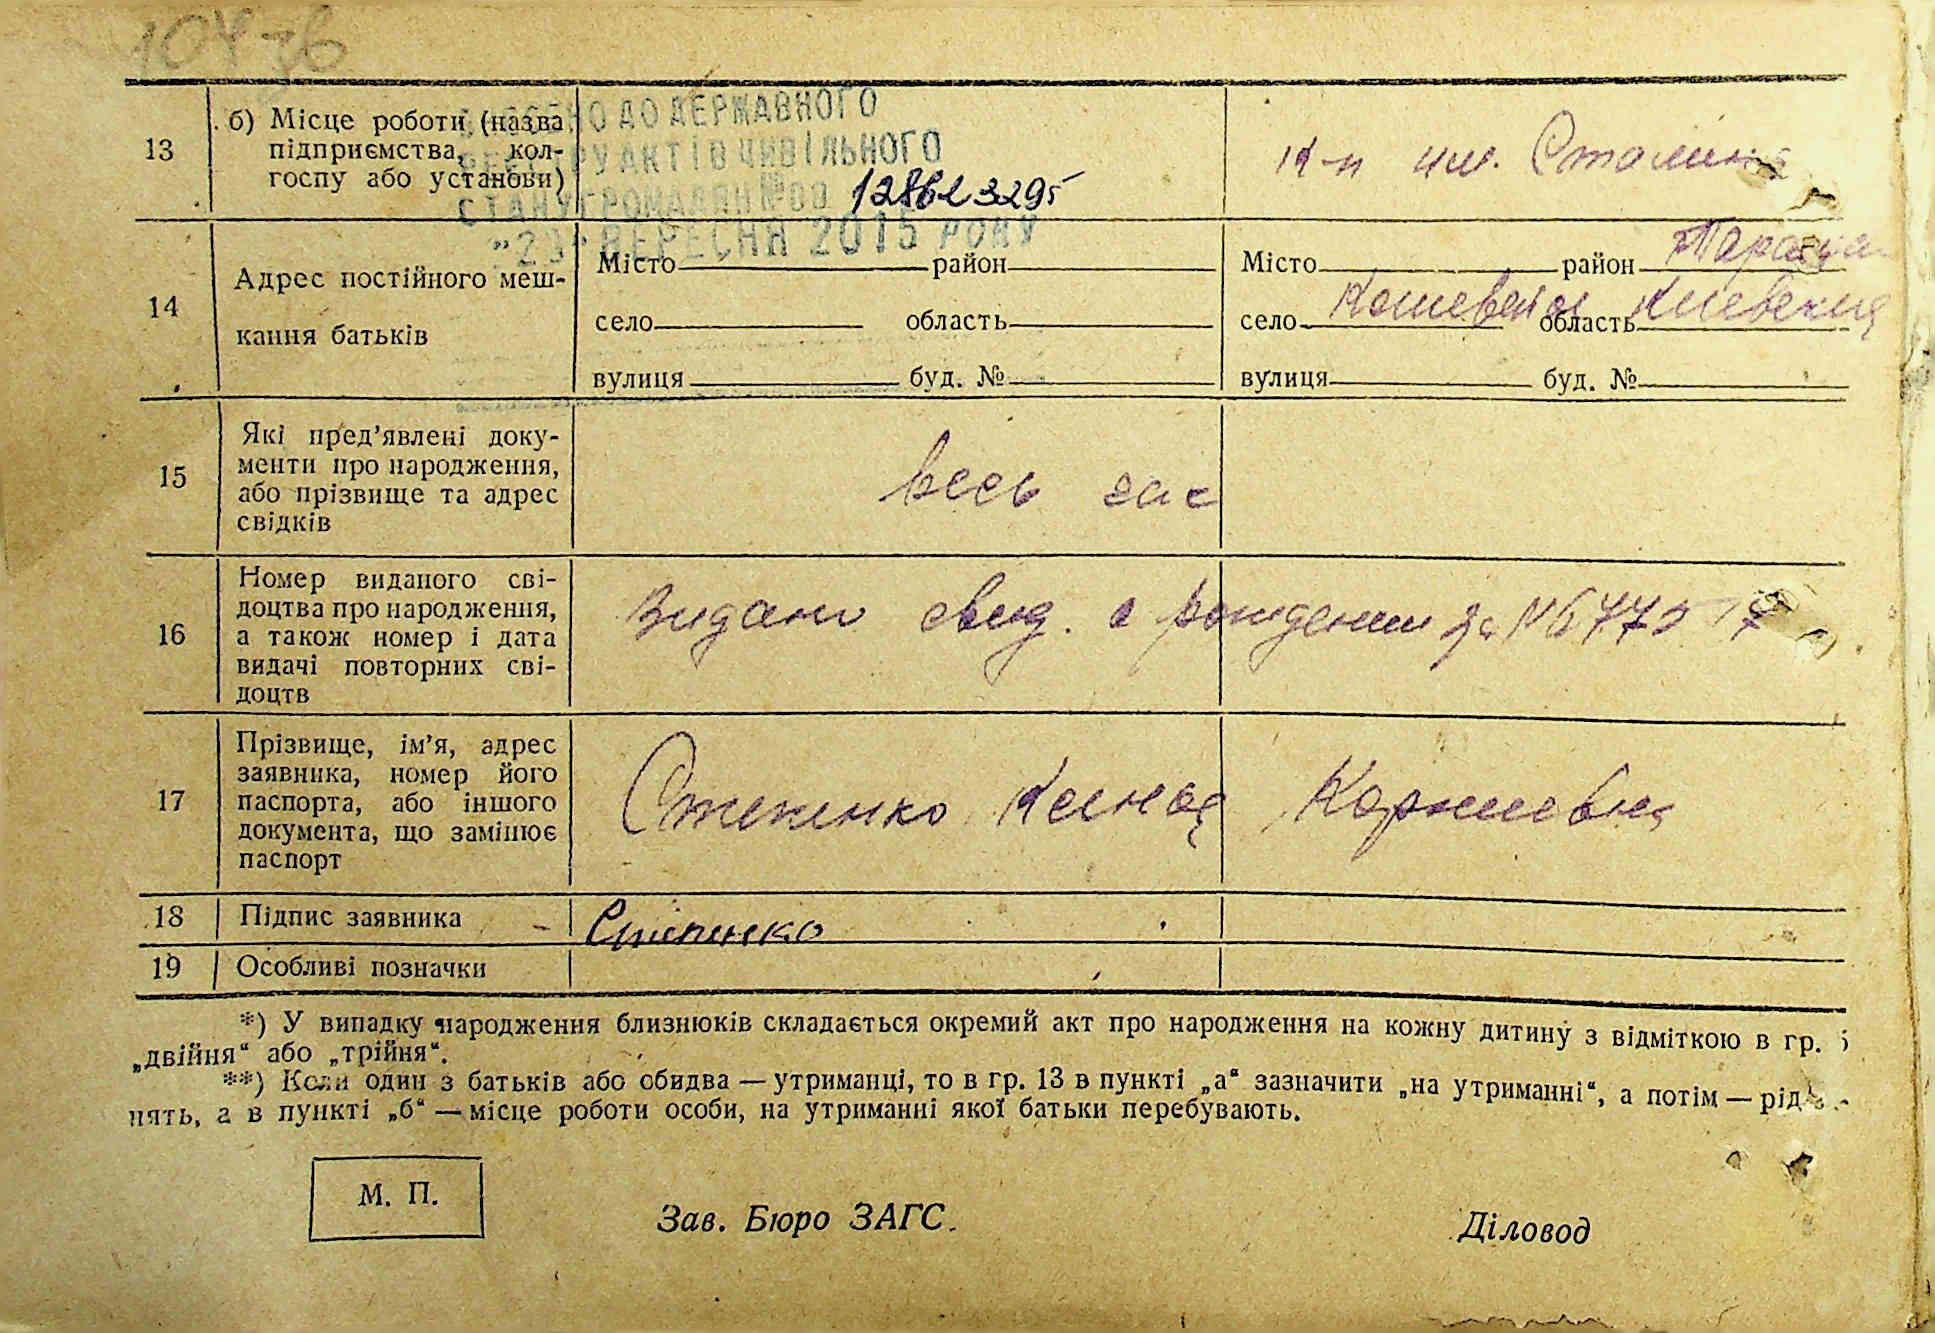 13
б) Місце роботи (назва
підприємства, кол-
госпу або установи)
ДО ДЕРЖАВНОГО
АКТІВ ЦИВІЛЬНОГО
СТАНУ ГРОМАДЯН № 00 128623295
"23" ВЕРЕСНЯ 2015 РОКУ
к-п им. Сталина
14
Адрес постійного меш-
кання батьків
Місто район
село область
вулиця буд. №
Місто район
село область Киевская
вулиця буд. №
15
Які пред’явлені доку-
менти про народження,
або прізвище та адрес
свідків
16
Номер виданого сві-
доцтва про народження,
а також номер і дата
видачі повторних сві-
доцтв
Видано свид. о рождении за №
17
Прізвище, ім’я, адрес
заявника, номер його
паспорта, або іншого
документа, що замінює
паспорт
18 Підпис заявника
19 Особливі позначки
*) У випадку народження близнюків складається окремий акт про народження на кожну дитину з відміткою в гр.
„двійня“ або „трійня“.
**) Коли один з батьків або обидва — утриманці, то в гр. 13 в пункті „а“ зазначити „на утриманні“, а потім —
нять, а в пункті „б“ — місце роботи особи, на утриманні якої батьки перебувають.
М. П.
Зав. Бюро ЗАГС.
Діловод